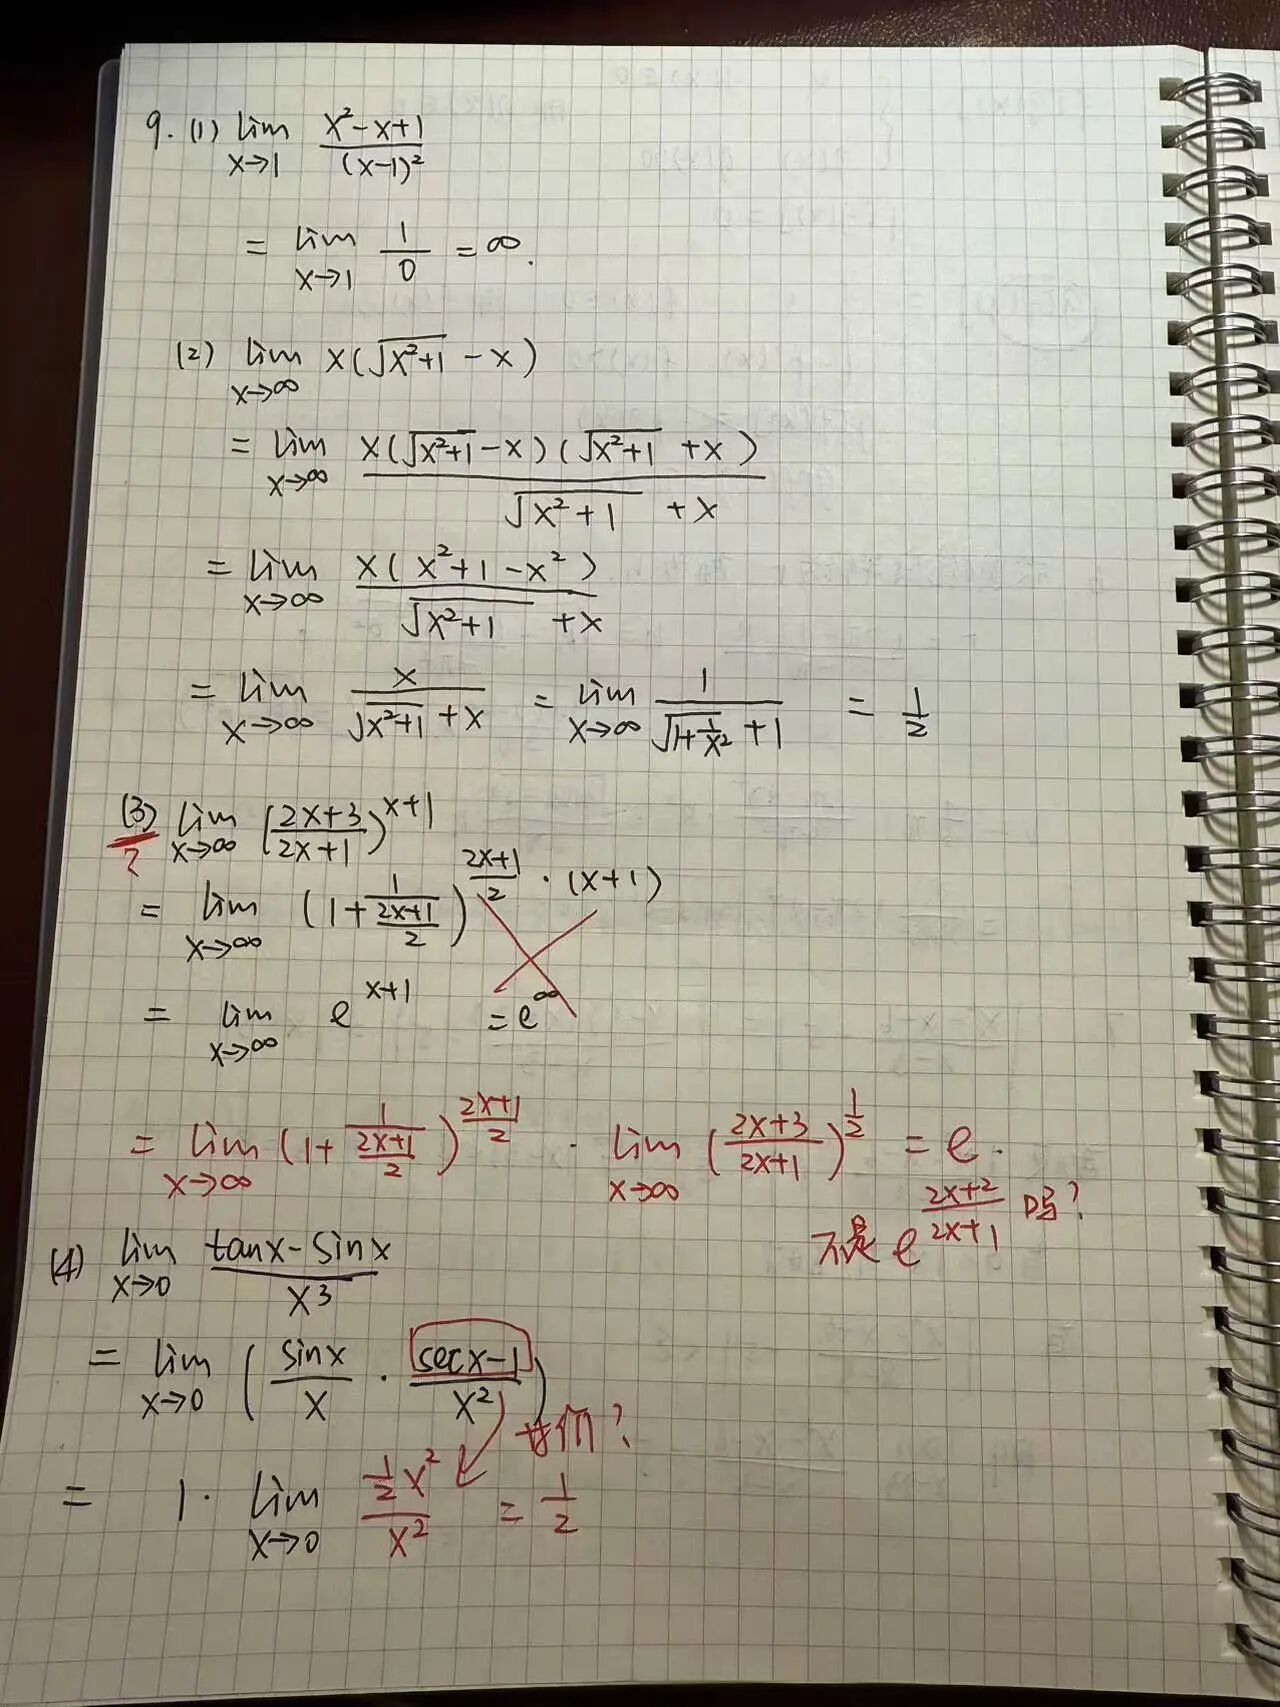 9. (1) lim x→1 (x²-x+1)/(x-1)²
= lim x→1 1/0 = ∞.
(2) lim x→∞ x(√(x²+1) - x)
= lim x→∞ x(√(x²+1) - x)(√(x²+1) + x)/(√(x²+1) + x)
= lim x→∞ x(x²+1-x²)/(√(x²+1) + x)
= lim x→∞ x/(√(x²+1) + x) = lim x→∞ 1/(√(1+1/x²) + 1) = 1/2
(3) lim x→∞ ((2x+3)/(2x+1))^(x+1)
?
= lim x→∞ (1 + 1/((2x+1)/2))^((2x+1)/2 · (x+1))
= lim x→∞ e^(x+1) = e^∞
= lim x→∞ (1 + 1/((2x+1)/2))^((2x+1)/2) · lim x→∞ ((2x+3)/(2x+1))^(1/2) = e.
不是 e^((2x+2)/(2x+1)) 吗?
(4) lim x→0 (tanx - sinx)/x³
= lim x→0 (sinx/x · (secx-1)/x²)
等价?
= 1 · lim x→0 (1/2 x²)/x² = 1/2